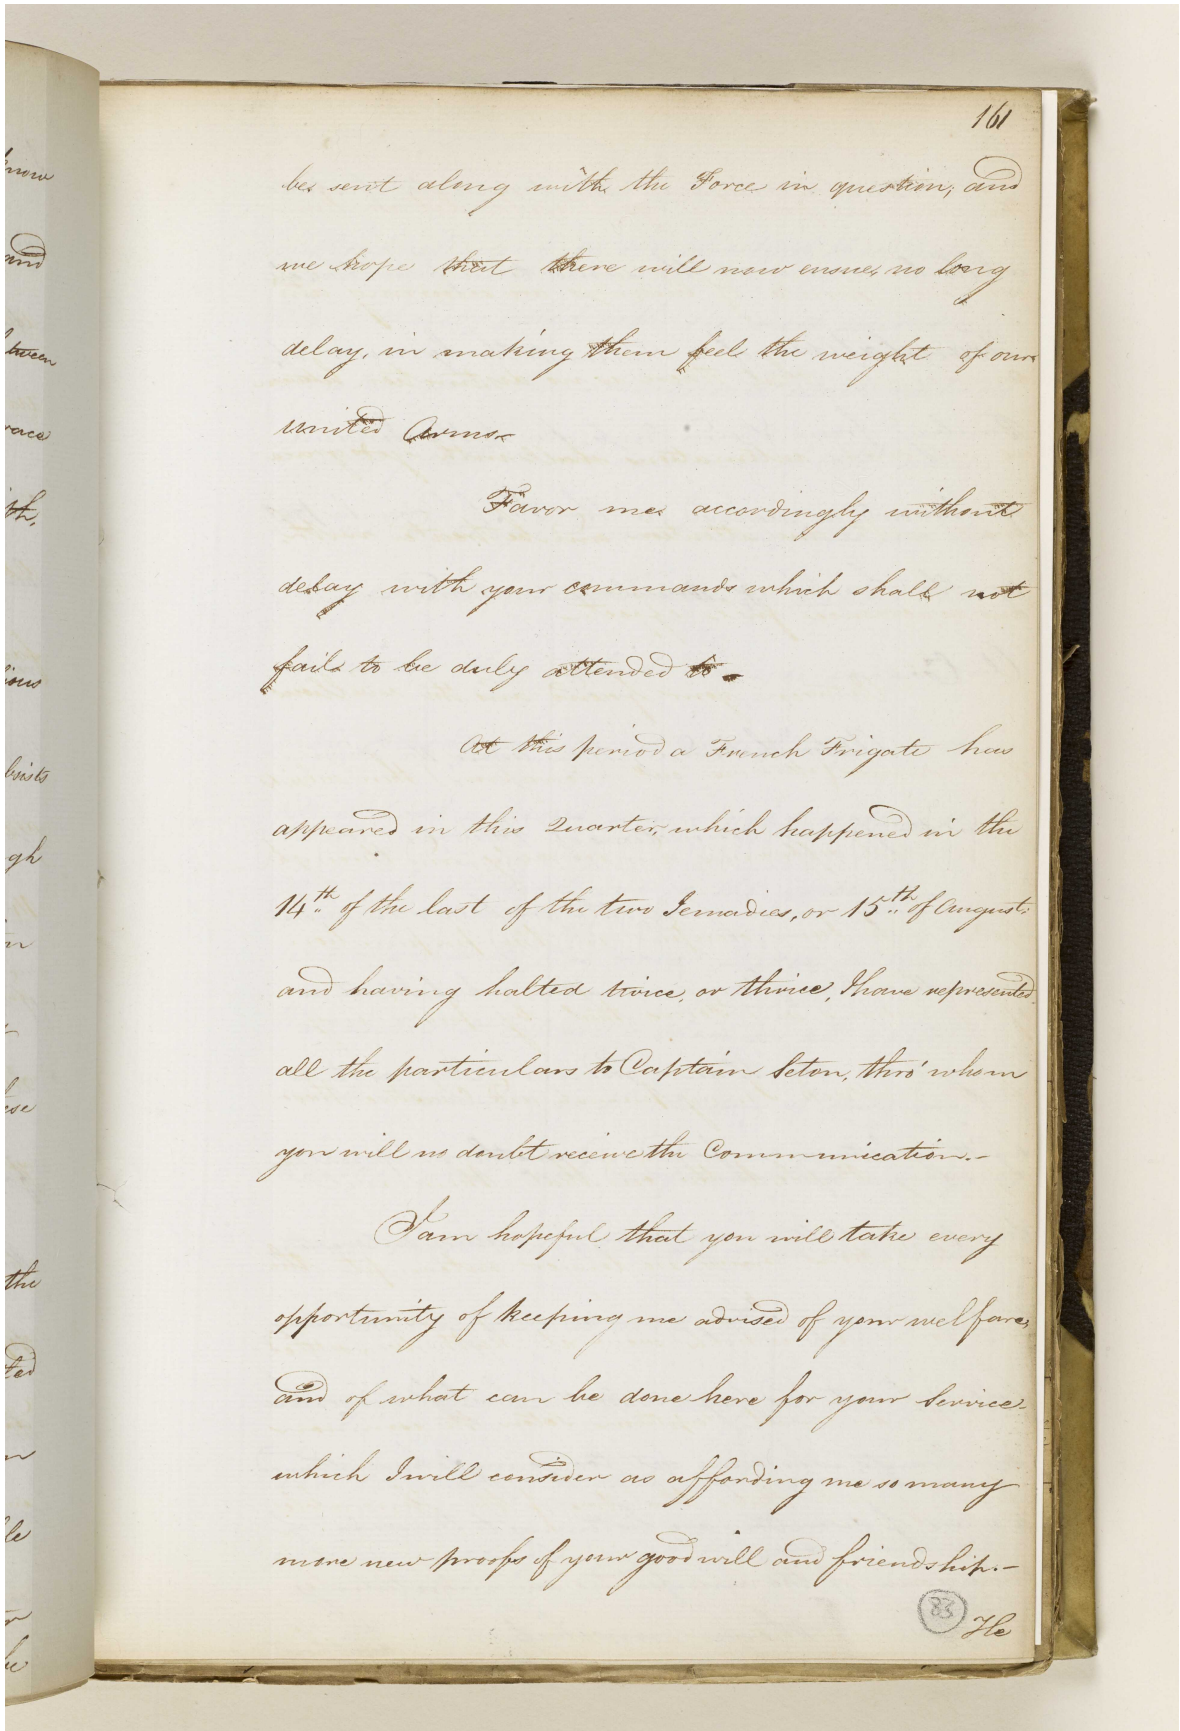 know
and
tween
race
th,
ious
bsists
gh
n
ese
the
ted
n
le
r
be
161
be sent along with the Force in question, and
we hope that there will now ensue, no long
delay, in making them feel the weight of our
united Arms.
Favor me accordingly without
delay with your commands which shall not
fail to be duly attended to.
At this period a French Frigate has
appeared in this Quarter, which happened in the
14th of the last of the two Jemadies, or 15th of August.
and having halted twice, or thrice, I have represented
all the particulars to Captain Seton, thro' whom
you will no doubt receive the Communication.-
I am hopeful that you will take every
opportunity of keeping me advised of your welfare,
and of what can be done here for your Service
which I will consider as affording me so many
more new proofs of your good will and friendship.-
83
He